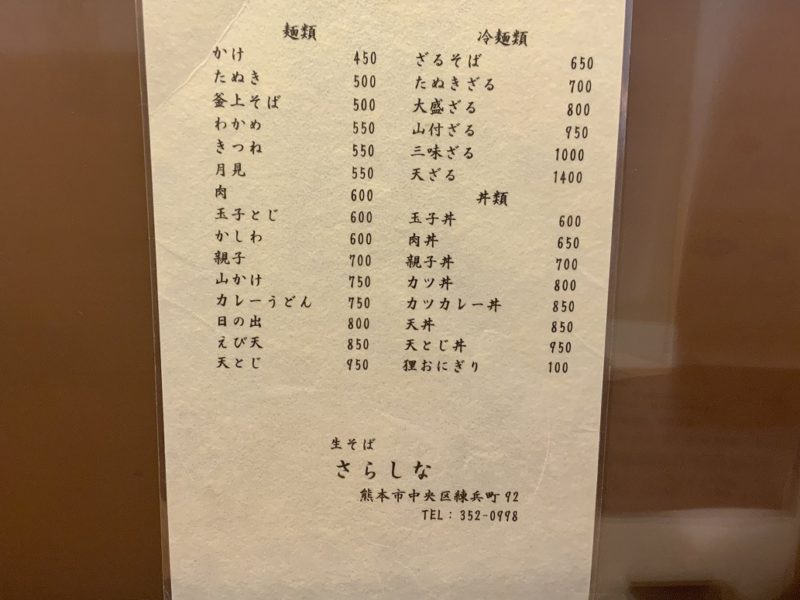 麺類
かけ 450
たぬき 500
釜上そば 500
わかめ 550
きつね 550
月見 550
肉 600
玉子とじ 600
かしわ 600
親子 700
山かけ 750
カレーうどん 750
日の出 800
えび天 850
天とじ 950
冷麺類
ざるそば 650
たぬきざる 700
大盛ざる 800
山付ざる 950
三味ざる 1000
天ざる 1400
丼類
玉子丼 600
肉丼 650
親子丼 700
カツ丼 800
カツカレー丼 850
天丼 850
天とじ丼 950
狸おにぎり 100
生そば
さらしな
熊本市中央区練兵町92
TEL: 352-0998